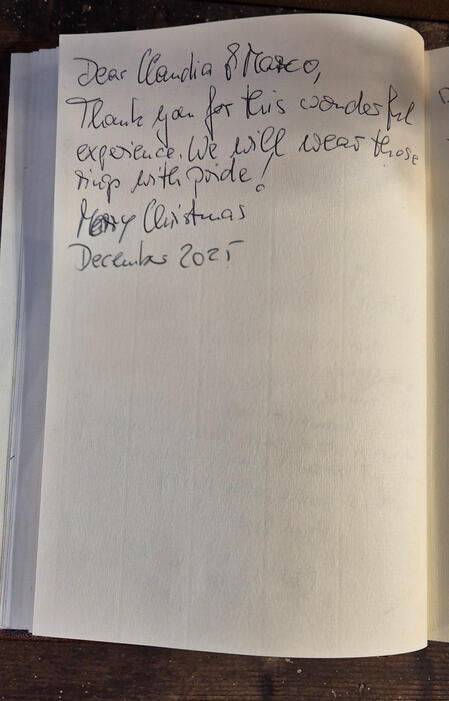 Dear Claudia & Marco,
Thank you for this wonderful
experience. We will wear those
rings with pride!
Merry Christmas
December 2025